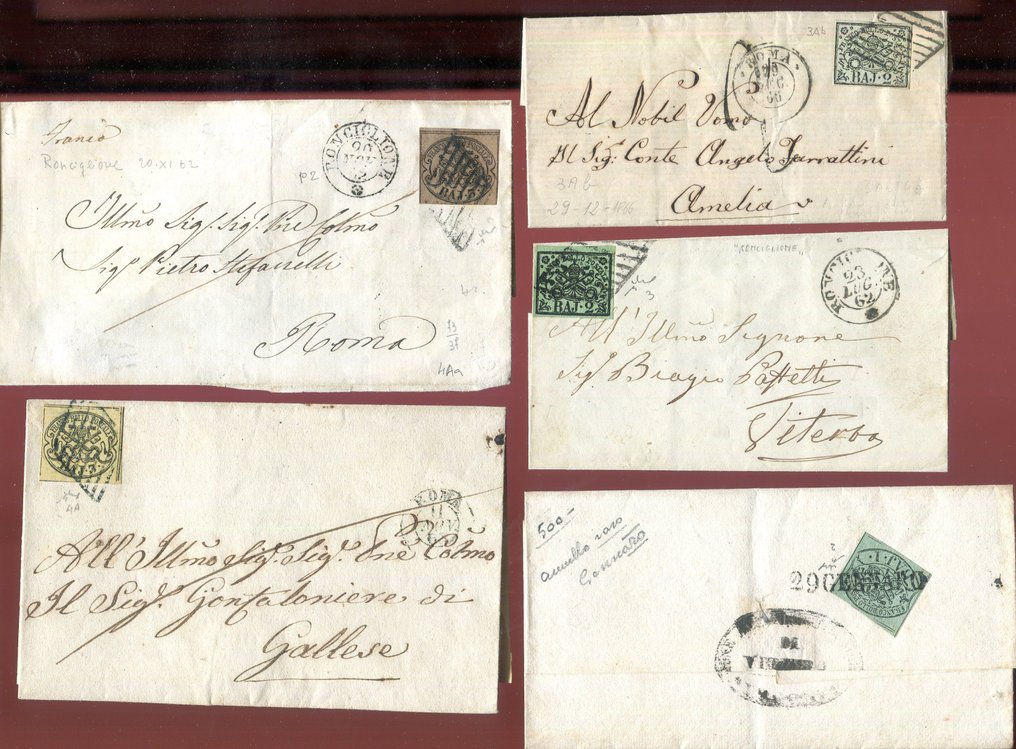 Franco
Ronciglione 20.XI.62
RONCIGLIONE
20
NOV
62
p2
Illmo Sigr. Sigr. Pne Colmo
Sigr Pietro Stefanelli
Roma
4Aa
3Ab
ROMA
DIC
66
BAJ. 2
Al Nobil Uomo
Il Sigr. Conte Angelo Farrattini
Amelia
3Ab
29-12-1866
"RONCIGLIONE"
BAJ. 2
3
23
LUG
62
All' Illmo Signore
Sigr. Biagio
Viterbo
4A
ROMA
11
All' Illmo Sigr. Sigr. Pne Colmo
Il Sigr. Gonfaloniere di
Gallese
500-
annullo raro
Gennaro
2
29 GENNARO
DI